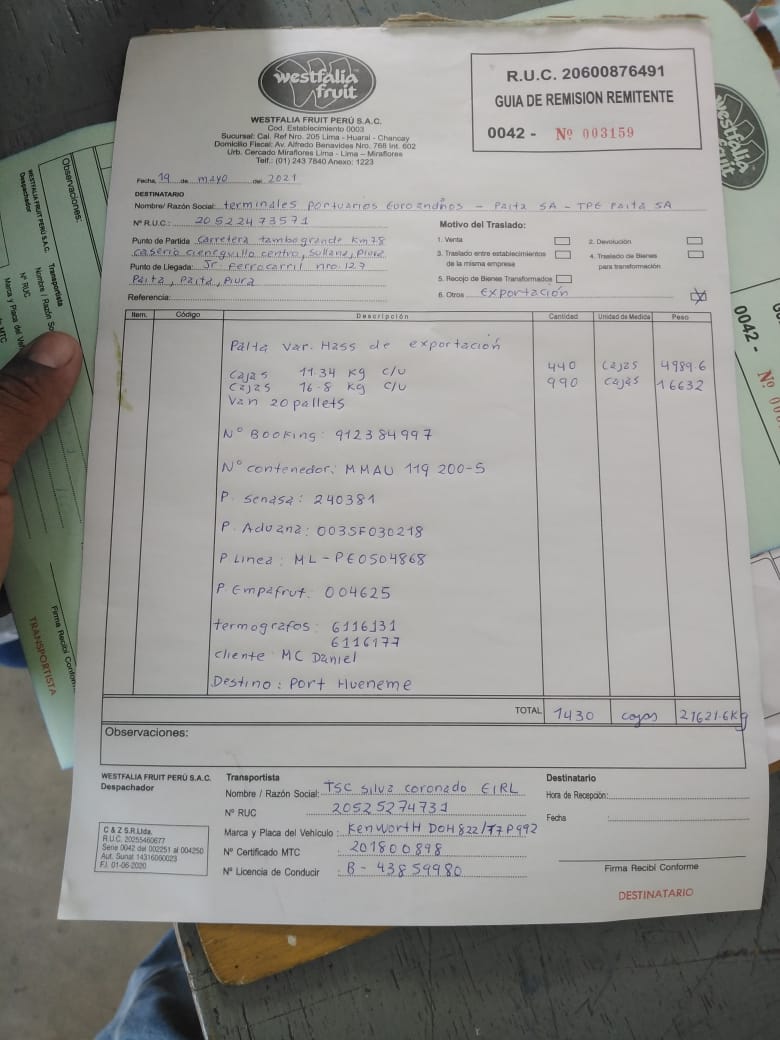 westfalia
fruit
WESTFALIA FRUIT PERÚ S.A.C.
Cod. Establecimiento 0003
Sucursal: Cal. Ref Nro. 205 Lima - Huaral - Chancay
Domicilio Fiscal: Av. Alfredo Benavides Nro. 768 Int. 602
Urb. Cercado Miraflores Lima - Lima – Miraflores
Telf.: (01) 243 7840 Anexo: 1223
R.U.C. 20600876491
GUIA DE REMISION REMITENTE
0042 - Nº 003159
Fecha 19 de mayo del 2021
DESTINATARIO
Nombre/ Razón Social: terminales portuarios Euroandinos - Paita SA - TPE Paita SA
Nº R.U.C.: 20522473571
Punto de Partida Carretera tambogrande Km 78
caserio cieneguillo centro, Sullana, Piura
Punto de Llegada: Jr Ferrocarril nro. 127
Paita, Paita, Piura
Referencia:
Motivo del Traslado:
1. Venta
2. Devolución
3. Traslado entre establecimientos
de la misma empresa
4. Traslado de Bienes
para transformación
5. Recojo de Bienes Transformados
6. Otros Exportación
Item. Código Descripción Cantidad Unidad de Medida Peso
Palta var. Hass de exportación
cajas 11.34 Kg c/u 440 cajas 4989.6
cajas 16.8 Kg c/u 990 cajas 16632
Van 20 pallets
Nº Booking: 912384997
Nº contenedor: MMAU 119 200-5
P. Senasa: 240381
P. Aduana: 003SF030218
P Linea: ML-PE0504868
P. Empafrut: 004625
termografos: 6116131
6116177
cliente MC Daniel
Destino: Port Hueneme
TOTAL 1430 cajas 21621.6Kg
Observaciones:
WESTFALIA FRUIT PERÚ S.A.C.
Despachador
C & Z S.R.Ltda.
R.U.C. 20255460677
Serie 0042 del 002251 al 004250
Aut. Sunat 14316060023
F.I. 01-06-2020
Transportista
Nombre / Razón Social: TSC Silva coronado EIRL
Nº RUC 20525274731
Marca y Placa del Vehículo: Kenworth D0H822/T7P992
Nº Certificado MTC : 201800898
Nº Licencia de Conducir : B-43859980
Destinatario
Hora de Recepción:
Fecha
Firma Recibí Conforme
DESTINATARIO
Observaciones:
WESTFALIA FRUIT PERÚ S.A.C.
Despachador
Transportista
Nº RUC
TRANSPORTISTA
westfalia
0042 -